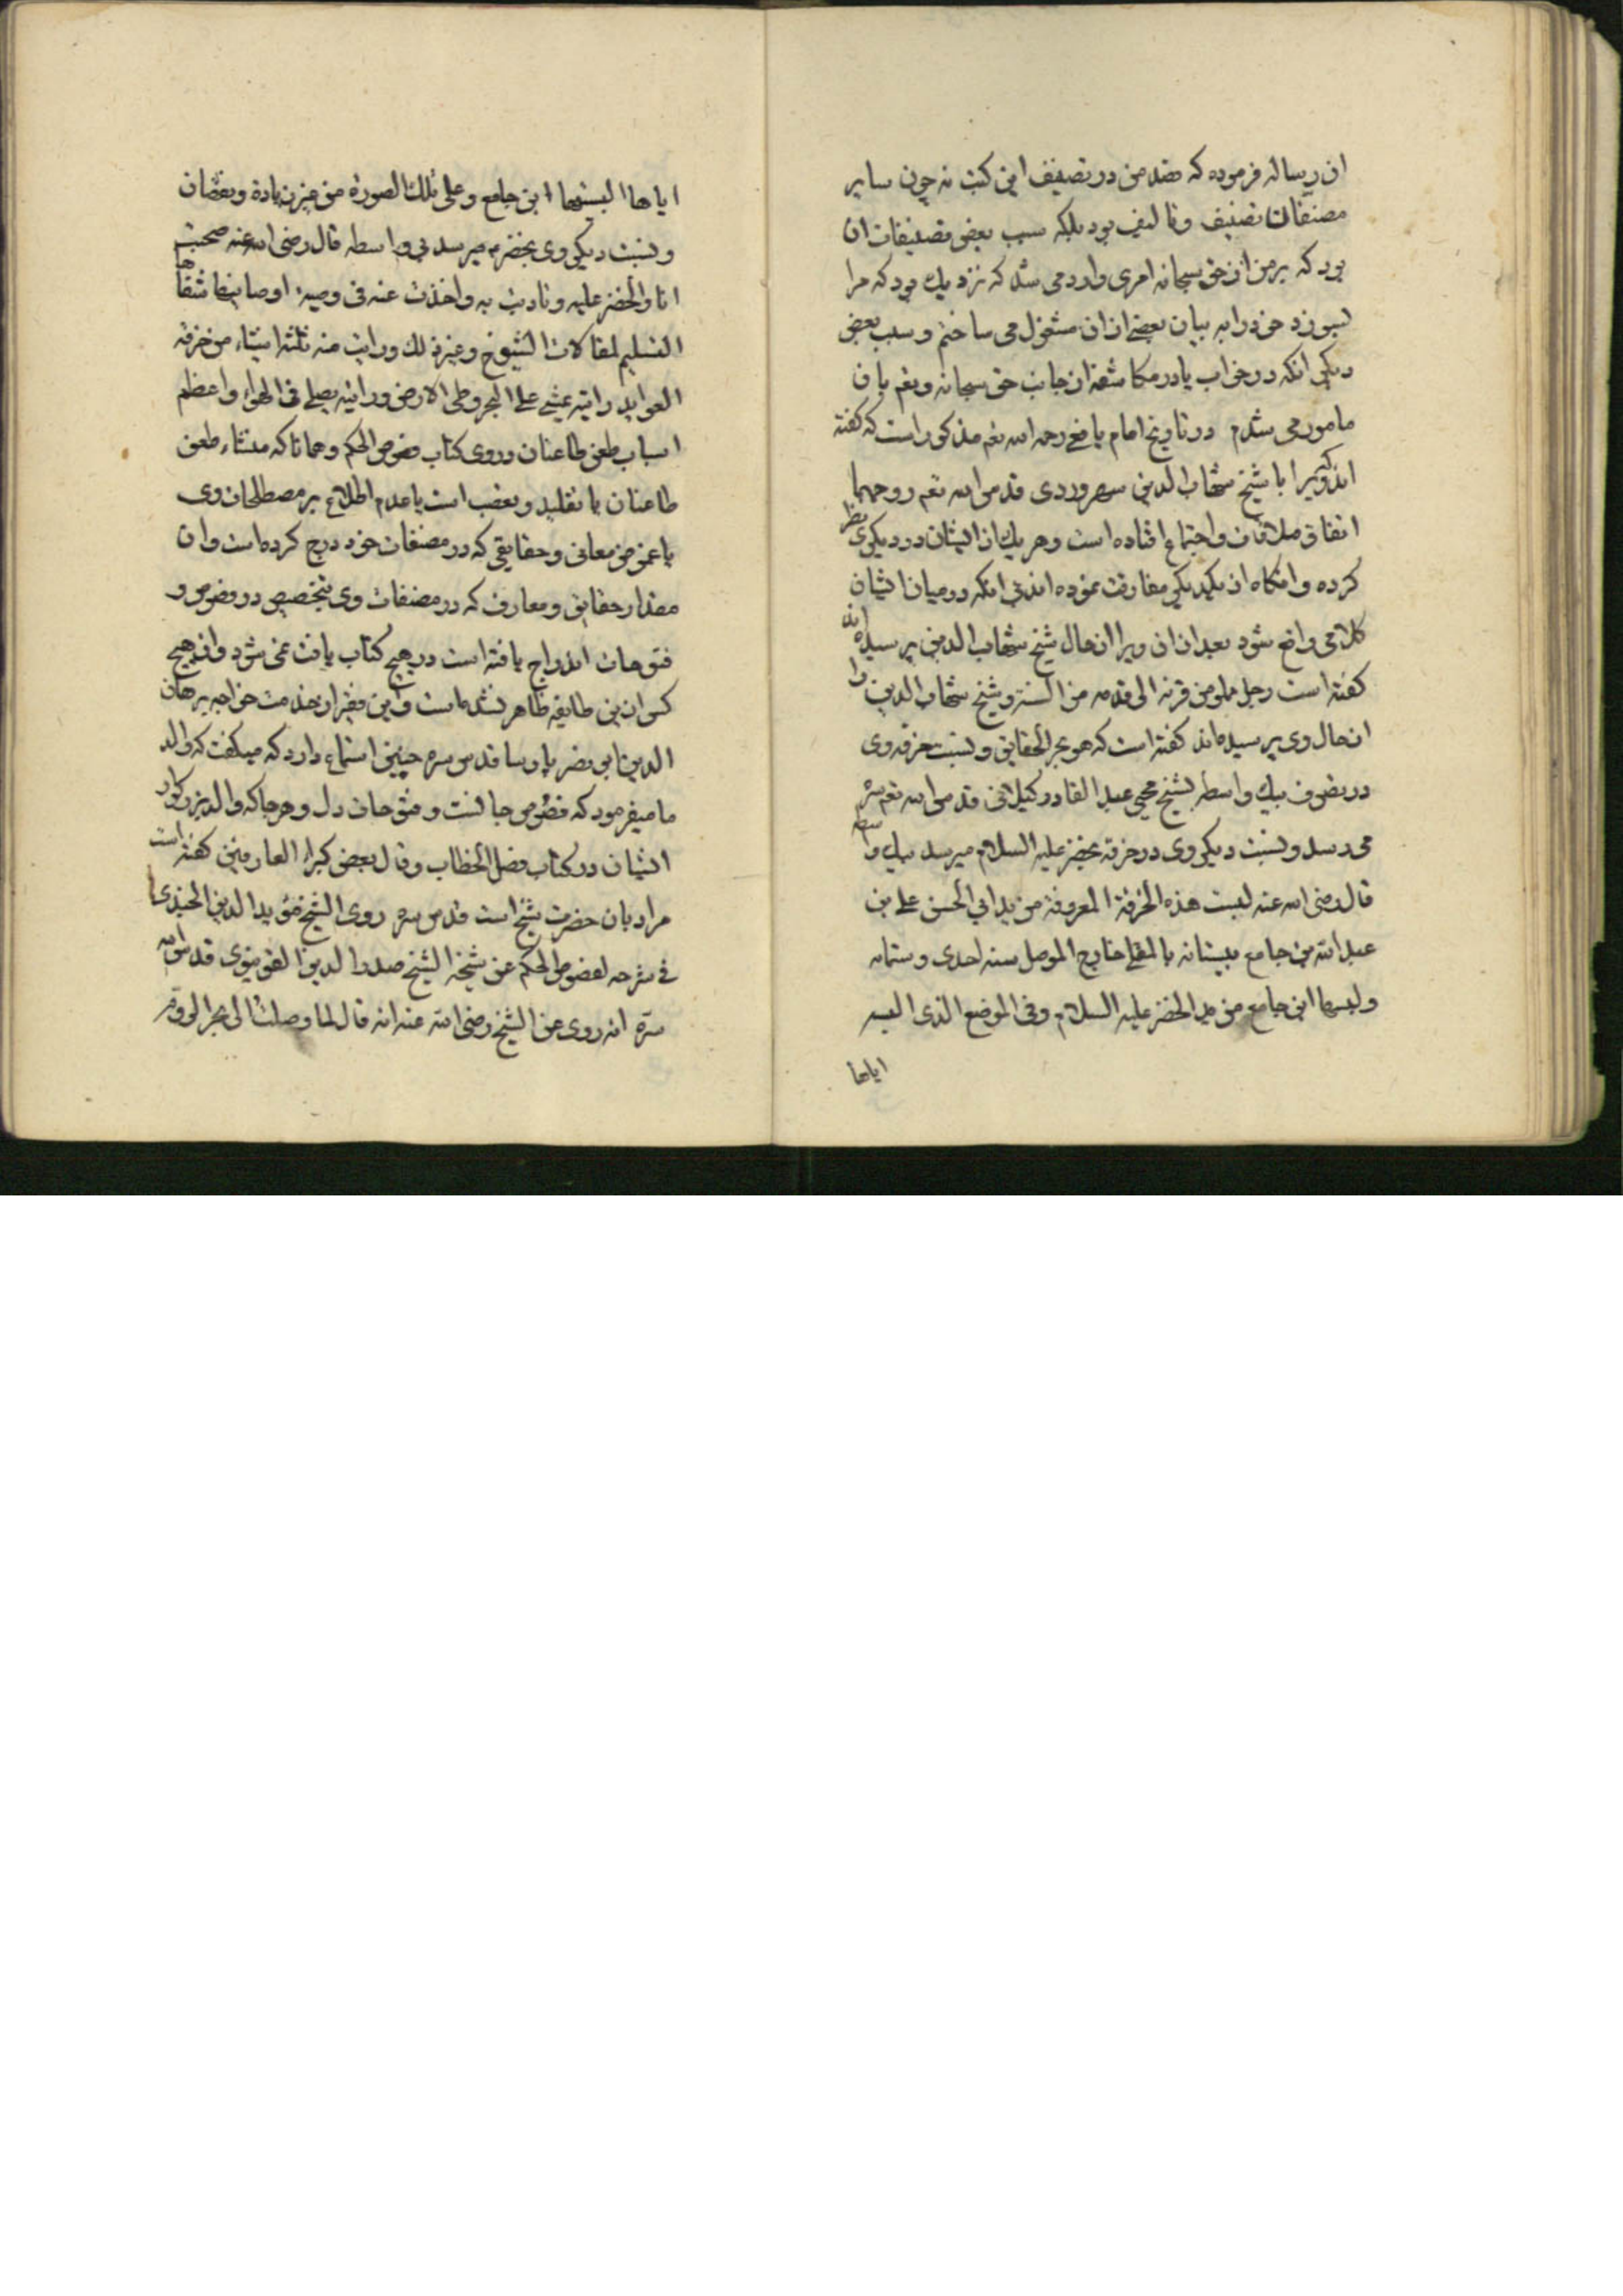 ان رساله فرموده که قصد من در تصنیف این کتب نه چون سایر
مصنفات تصنیف و تالیف بود بلکه سبب بعضی تصنیفات ان
بود که بر من از حق سبحانه امری وارد می شد که نزدیک بود که مرا
بسوزد خود را به بیان بعضی از ان مشغول می ساختم و سبب بعضی
دیکر انکه در خواب یا در مکاشفه از جانب حق سبحانه و تعم بان
مامور می شدم در تاریخ امام یافعی رحمه الله تعم مذکور است که کفته
اند ویرا با شیخ شهاب الدین سهروردی قدس الله تعم روحهما
اتفاق ملاقات و اجتماع افتاده است و هر یک از ایشان در دیکری نظر
کرده و انکاه از یکدیکر مفارقت نموده اند بی انکه در میان ایشان
کلامی واقع شود بعد از ان ویرا از حال شیخ شهاب الدین پرسیده اند
کفته است رجل مملو من قرنه الی قدمه من السنة و شیخ شهاب الدین را
از حال وی پرسیده اند کفته است که هو بحر الحقایق و نسبت خرقه وی
در تصوف بیک واسطه بشیخ محیی عبد القادر کیلانی قدس الله تعم سره
می رسد و نسبت دیکر وی در خرقه بخضر علیه السلام میرسد بیک واسطه
قال رضی الله عنه لبست هذه الخرقة المعروفة من ید ابی الحسن علی بن
عبد الله بن جامع ببستانه بالمقلی خارج الموصل سنه احدی و ستمایه
و لبسها ابن جامع من ید الخضر علیه السلام و فی الموضع الذی البسه
ایاها
ایاها البسنیها ابن جامع و علی تلک الصورة من غیر زیادة و نقصان
و نسبت دیکر وی بخضر م میرسد بی واسطه قال رضی الله عنه صحبت
انا و الخضر علیه و تادبت به و اخذت عنه فی وصیة اوصانیها شفاها
التسلیم لمقالات الشیوخ و غیر ذلک و رایت منه ثلثه اشیاء من خرق
العواید رایته یمشی علی البحر و طی الارض و رایته یصلی فی الهواء و اعظم
اسباب طعن طاعنان در وی کتاب فصوص الحکم و همانا که منشاء طعن
طاعنان یا تقلید و تعصب است یا عدم اطلاع بر مصطلحات وی
یا غموض معانی و حقایقی که در مصنفات خود درج کرده است و ان
مقدار حقایق و معارف که در مصنفات وی بتخصیص در فصوص و
فتوحات اندراج یافته است در هیچ کتاب یافت نمی شود و از هیچ
کس از این طایفه ظاهر نشده است و این فقیر از خدمت خواجه برهان
الدین ابی نصر پارسا قدس سره چنین استماع دارد که میکفت که والد
ما میفرمود که فصوص جانست و فتوحات دل و هر جا که والد بزرکوار
ایشان در کتاب فصل الخطاب و قال بعض کبراء العارفین کفته است
مراد بان حضرت شیخ است قدس سره روی الشیخ مؤید الدین الجندی
فی شرحه لفصوص الحکم عن شیخه الشیخ صدر الدین القونیوی قدس الله
سره انه روی عن الشیخ رضی الله عنه انه قال لما وصلت الی بحر الروم